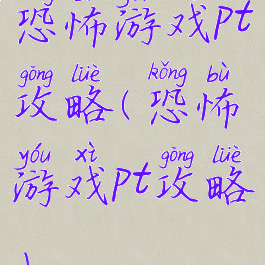 恐怖游戏pt
gōng lüè kǒng bù
攻略(恐怖
yóu xì gōng lüè
游戏pt攻略
)